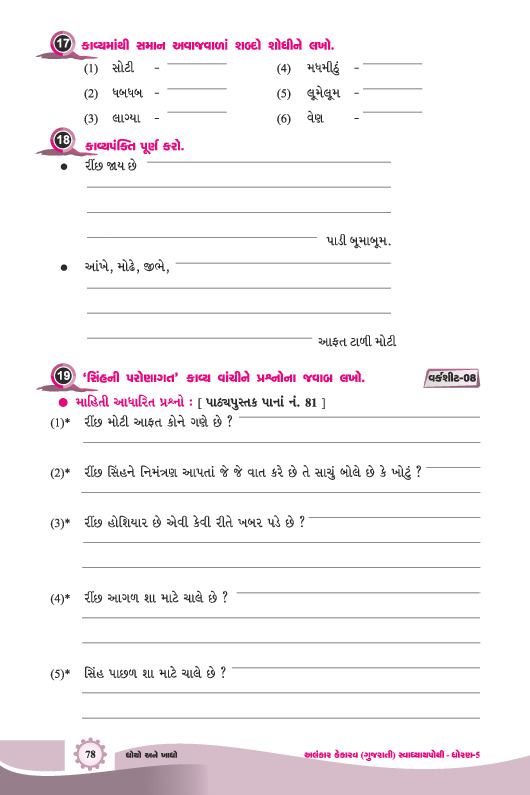 17 કાવ્યમાંથી સમાન અવાજવાળાં શબ્દો શોધીને લખો.
(1) સોટી - (4) મધમીઠું -
(2) ધબધબ - (5) લૂમેલૂમ -
(3) લાગ્યા - (6) વેણ -
18 કાવ્યપંક્તિ પૂર્ણ કરો.
● રીંછ જાય છે
પાડી બૂમાબૂમ.
● આંખે, મોઢે, જીભે,
આફત ટાળી મોટી
19 ‘સિંહની પરોણાગત’ કાવ્ય વાંચીને પ્રશ્નોના જવાબ લખો. વર્કશીટ-08
● માહિતી આધારિત પ્રશ્નો : [ પાઠ્યપુસ્તક પાનાં નં. 81 ]
(1)* રીંછ મોટી આફત કોને ગણે છે ?
(2)* રીંછ સિંહને નિમંત્રણ આપતાં જે જે વાત કરે છે તે સાચું બોલે છે કે ખોટું ?
(3)* રીંછ હોશિયાર છે એવી કેવી રીતે ખબર પડે છે ?
(4)* રીંછ આગળ શા માટે ચાલે છે ?
(5)* સિંહ પાછળ શા માટે ચાલે છે ?
78 ધોચો અને ખાધો અલંકાર કેકારવ (ગુજરાતી) સ્વાધ્યાયપોથી - ધોરણ-5